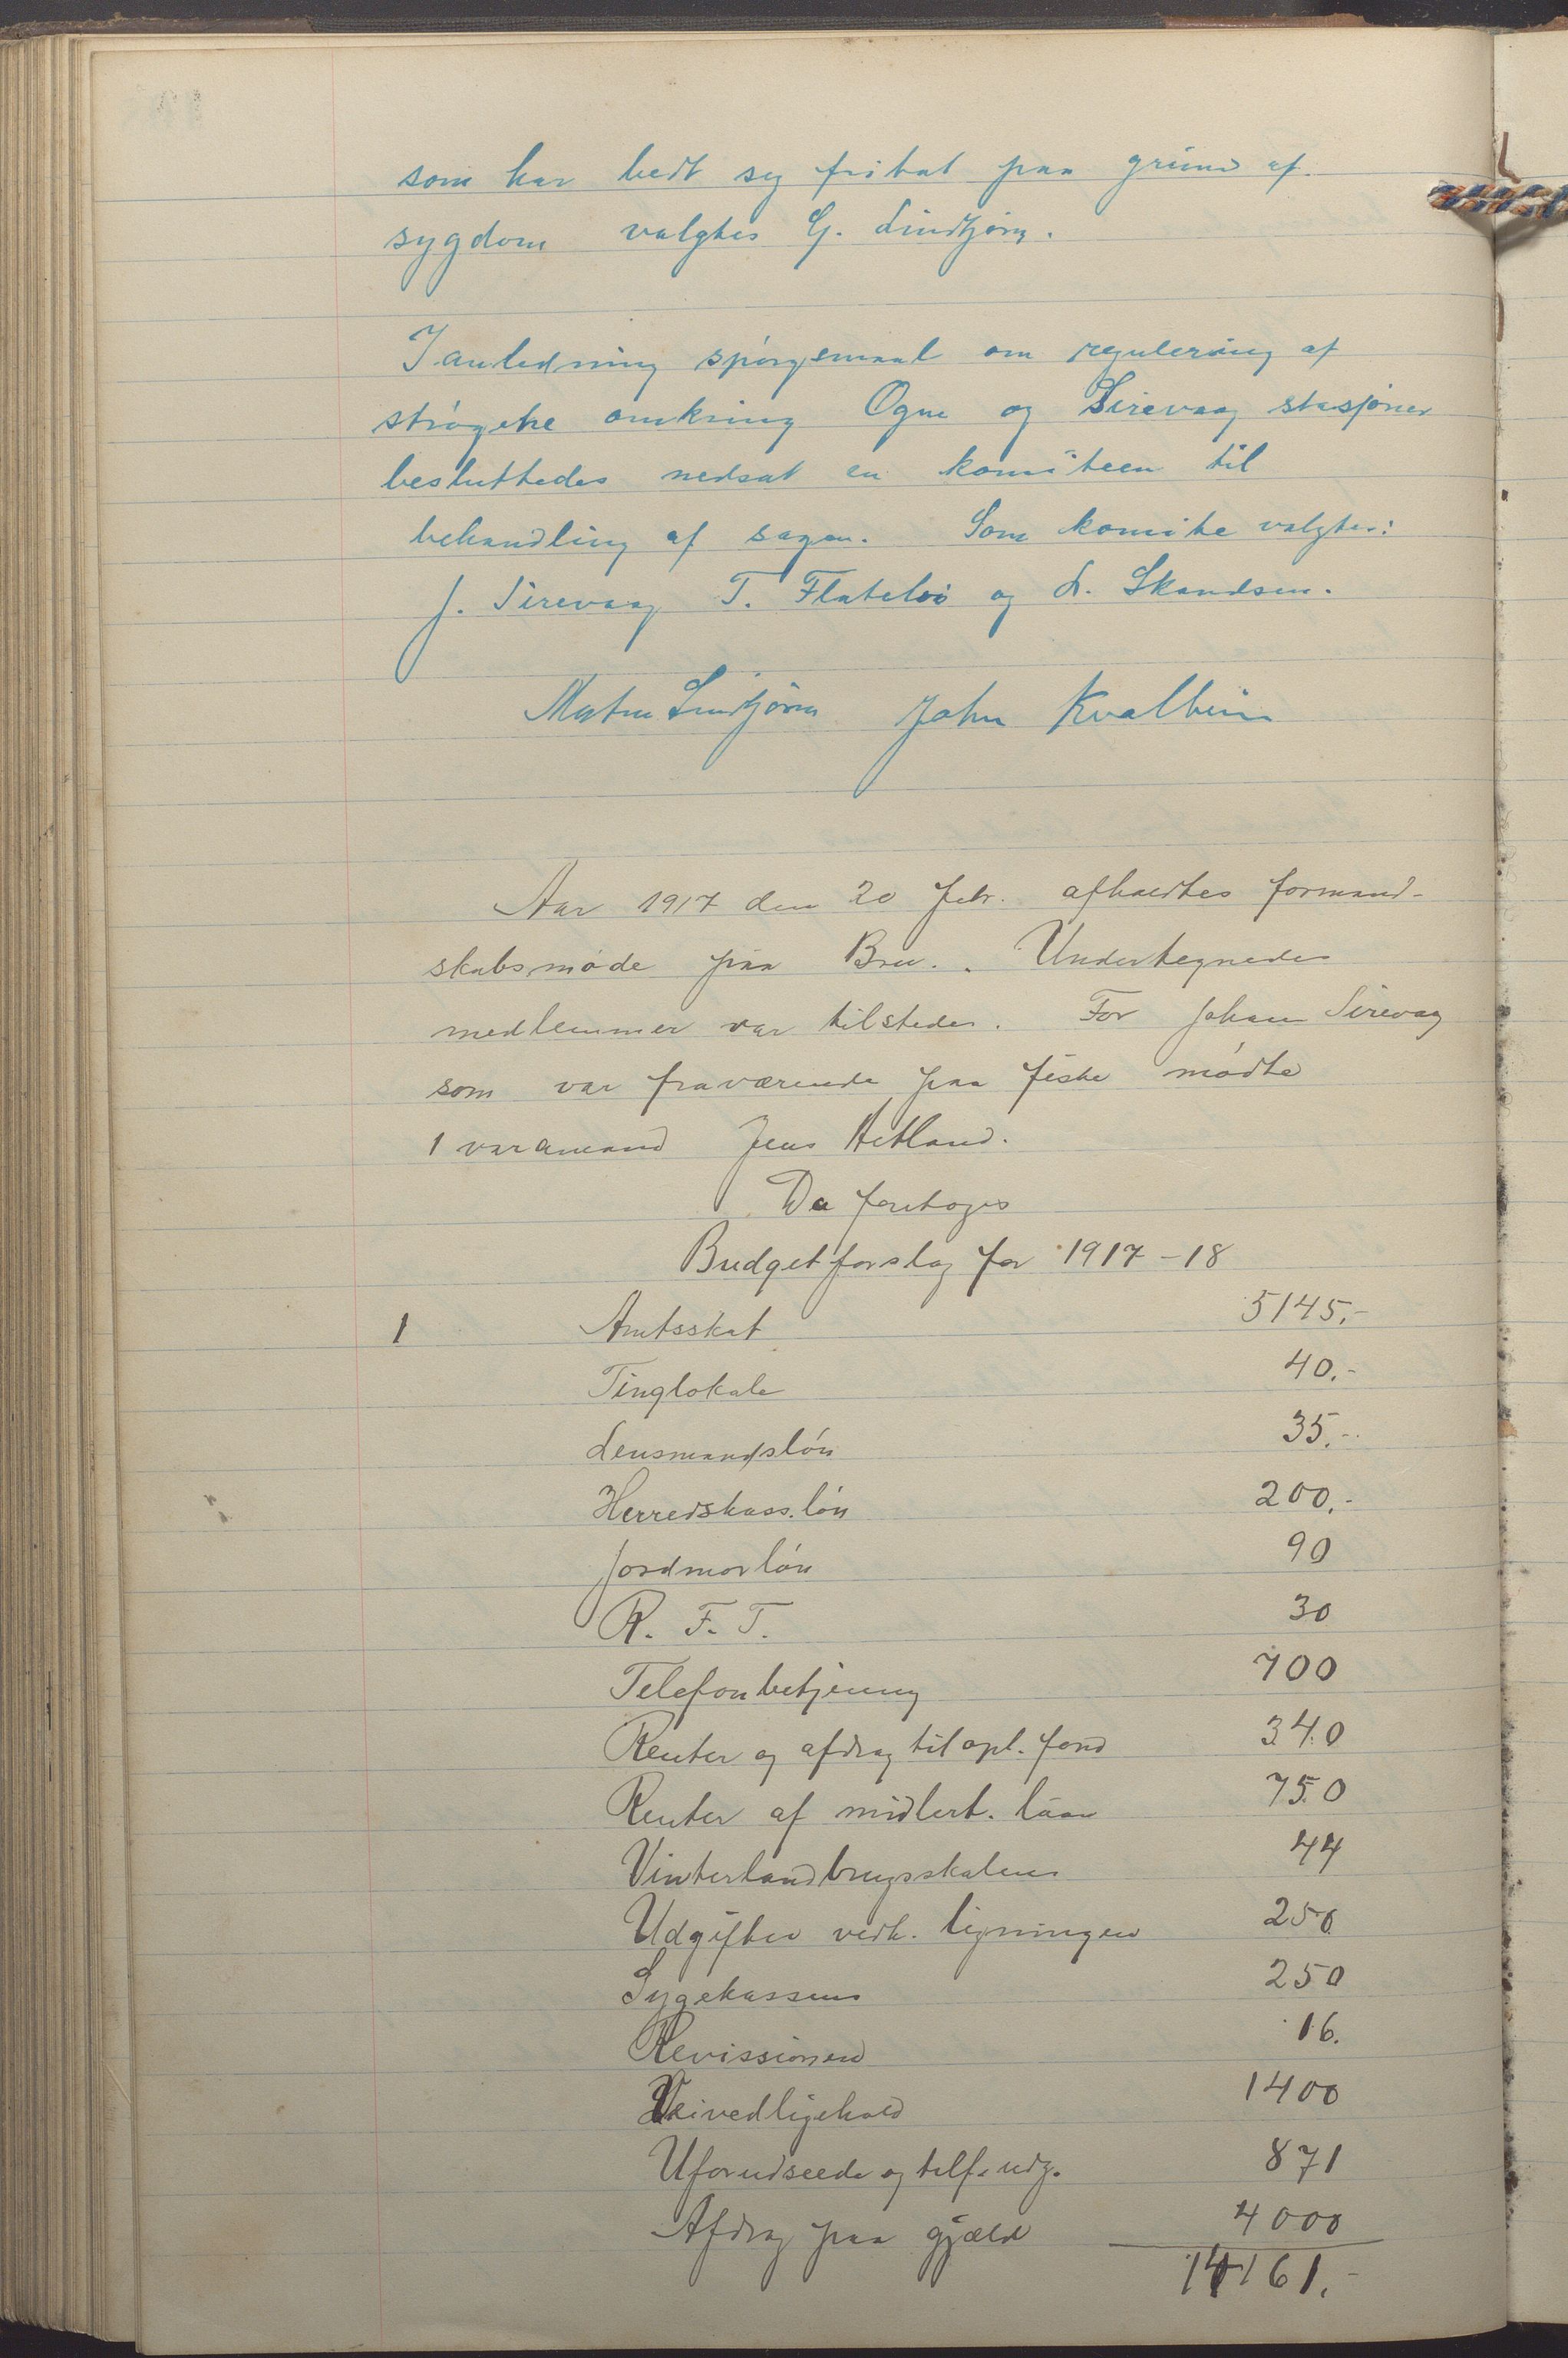 som har bedt seg fritat paa grund af
sygdom valgtes G. Lindtjørn.
I anledning spörgsmaal om regulering af
strögene omkring Ogne og Sirevaag stasjoner
besluttedes nedsat en komiteen til
behandling af sagen. Som komite valgtes:
J. Sirevaag T. Flatelöi og L. Skandsen.
Morten Lindtjörn John Kvalbein
Aar 1917 den 20 Febr. afholdtes formand-
skabsmöde paa Bru. Undertegnede
medlemmer var tilstede. For Johan Sirevaag
som var fraværende paa fiske mödte
1 varamand Jens Hetland.
Da foretoges
Budgetforslag for 1917-18
1 Amtsskat 5145.-
Tinglokale 40.-
Lensmandslön 35.-
Herredskass.lön 200.-
Jordmorlön 90
R. F. T. 30
Telefonbetjening 700
Renter og afdrag til opl. fond 340
Renter af midlert. laan 750
Vinterlandbrugsskolen 44
Udgifter vedk. ligningen 250
Sygekassen 250
Revissionen 16.
Veivedligehold 1400
Uforudseede og tilf. udg. 871
Afdrag paa gjæld 4000
14161.-